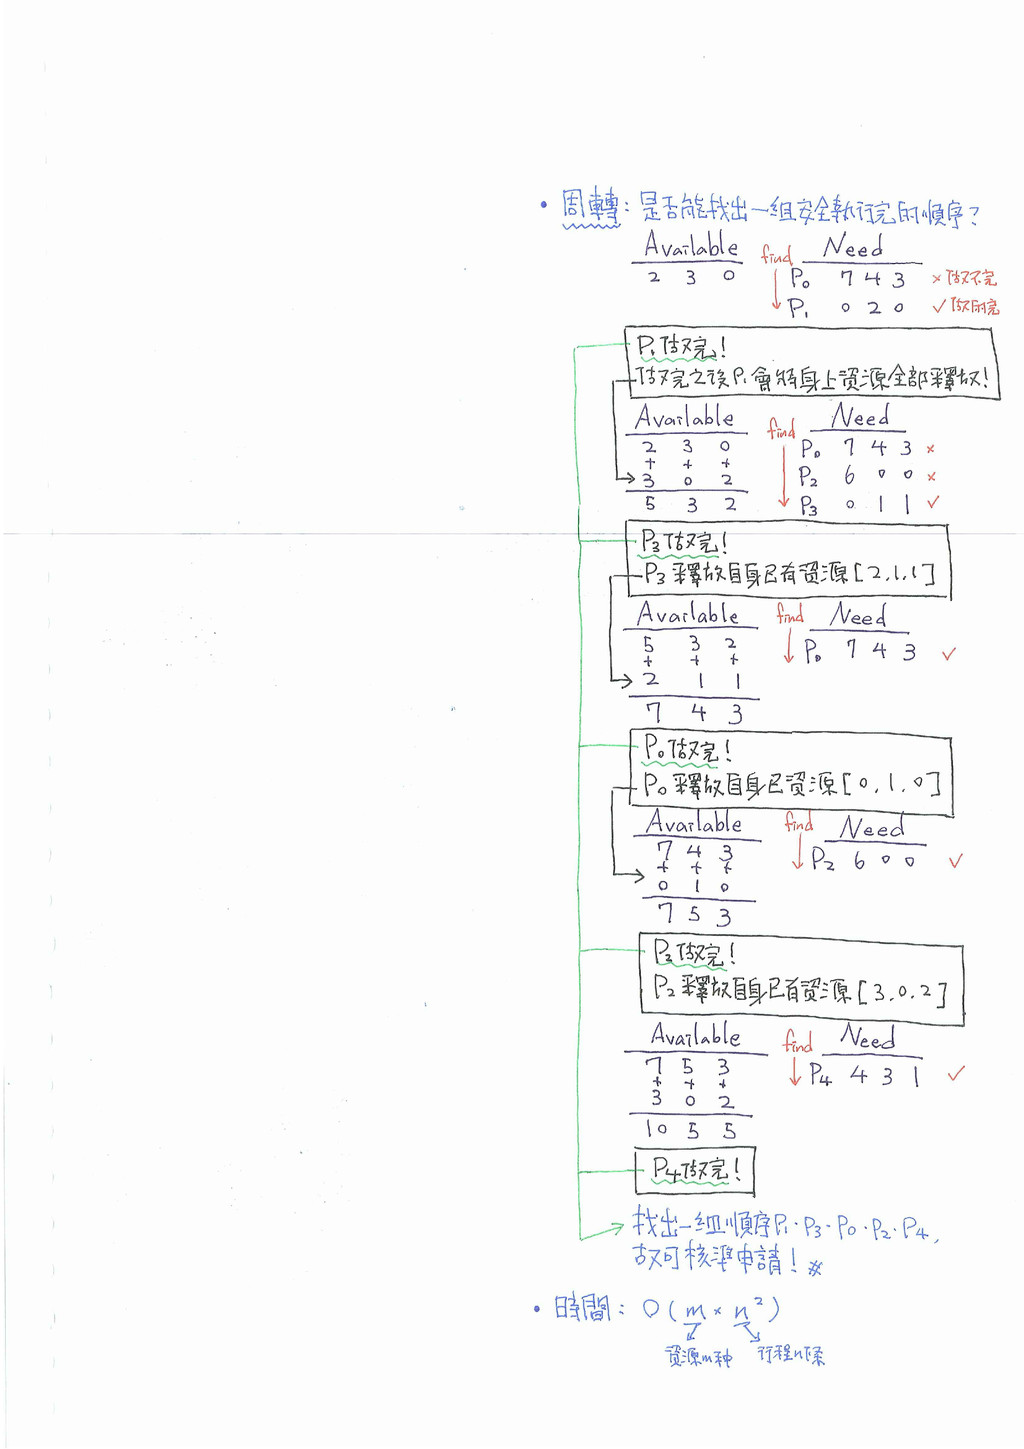 • 周轉: 是否能找出一組安全執行完的順序?
Available find Need
2 3 0 P0 7 4 3 × 做不完
P1 0 2 0 ✓ 做的完
P1做完!
做完之後P1會將身上資源全部釋放!
Available find Need
2 3 0 P0 7 4 3 ×
+ + + P2 6 0 0 ×
3 0 2 P3 0 1 1 ✓
5 3 2
P3做完!
P3釋放自身已有資源[2,1,1]
Available find Need
5 3 2 P0 7 4 3 ✓
+ + +
2 1 1
7 4 3
P0做完!
P0釋放自身已資源[0,1,0]
Available find Need
7 4 3 P2 6 0 0 ✓
+ + +
0 1 0
7 5 3
P2做完!
P2釋放自身已有資源[3,0,2]
Available find Need
7 5 3 P4 4 3 1 ✓
+ + +
3 0 2
10 5 5
P4做完!
找出一組順序P1.P3.P0.P2.P4,
故可核準申請! #
• 時間: O(m × n²)
資源m种 行程n條